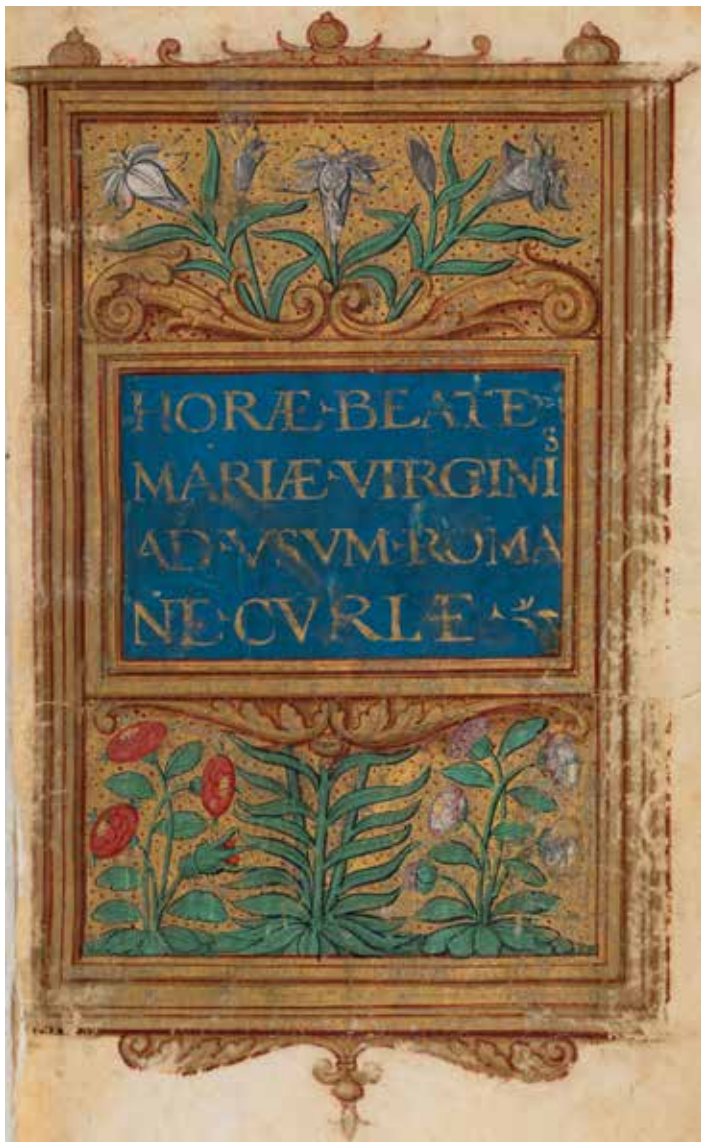 HORÆ·BEATE·
MARIÆ·VIRGINIS
AD·VSVM·ROMA
NE·CVRIÆ